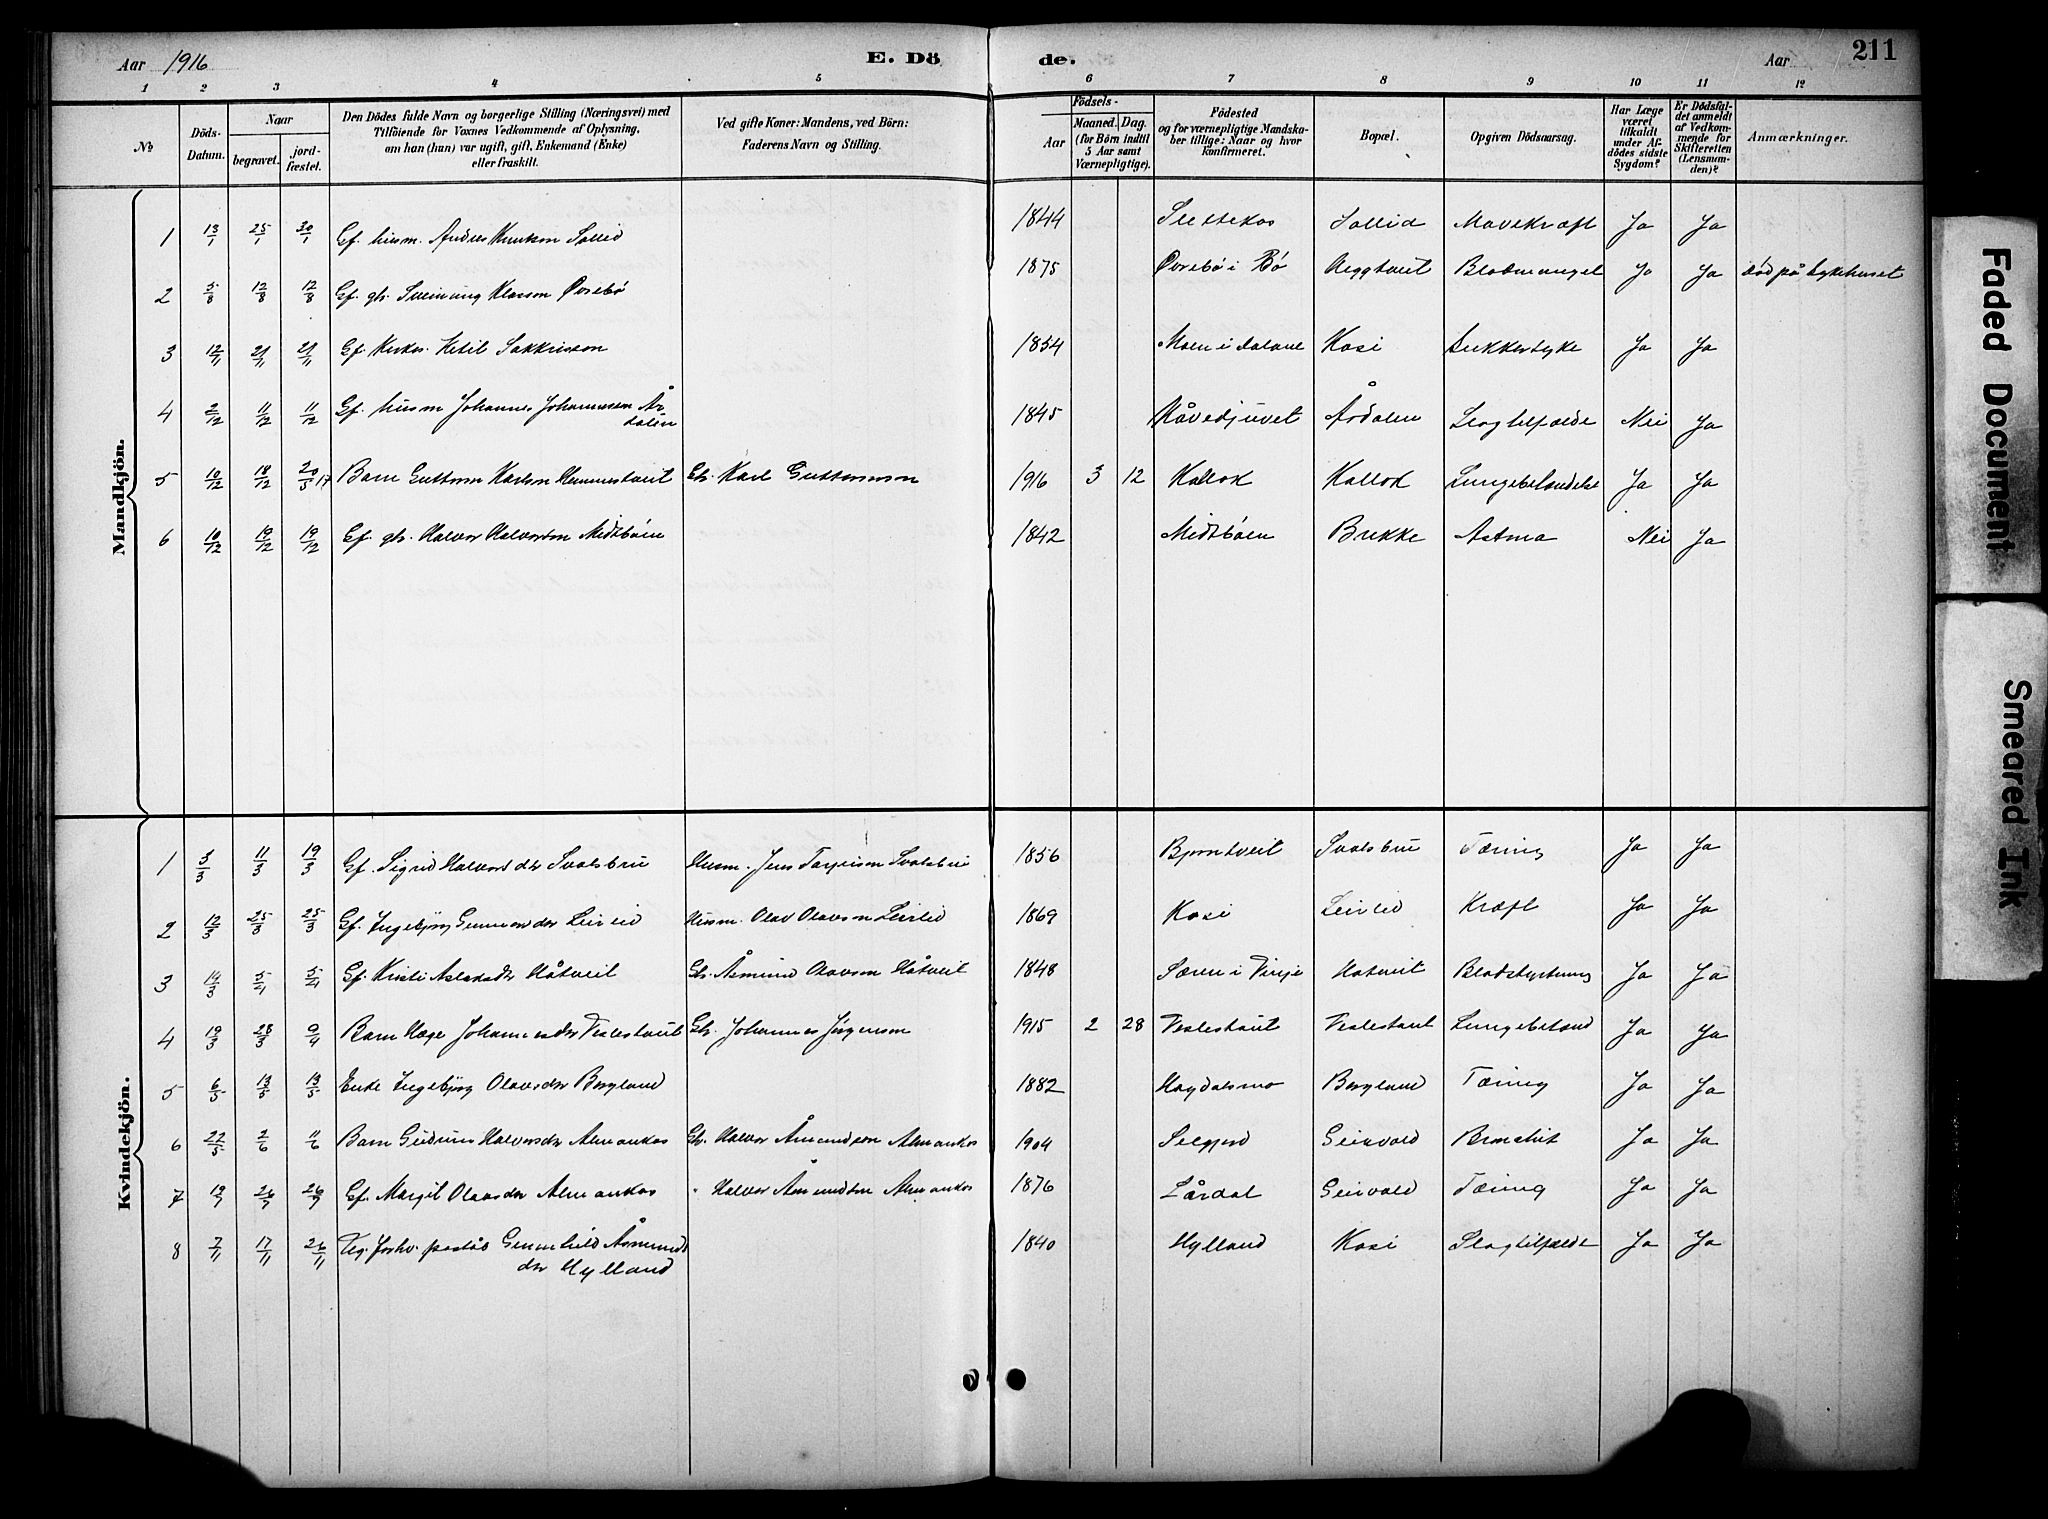 Aar 1916
E. Döde.
Aar
211
1 2 3 4 5 6 7 8 9 10 11 12
No
Döds-Datum.
Naar
begravet.
jord-fæstet.
Den Dödes fulde Navn og borgerlige Stilling (Næringsvei) med
Tilföiende for Voxnes Vedkommende af Oplysning,
om han (hun) var ugift, gift, Enkemand (Enke)
eller fraskilt.
Ved gifte Koner: Mandens, ved Börn:
Faderens Navn og Stilling.
Födsels-
Aar
Maaned. Dag.
(for Börn indtil
5 Aar samt
Værnepligtige).
Födested
og for værnepligtige Mandska-
ber tillige: Naar og hvor
konfirmeret.
Bopæl.
Opgiven Dödsaarsag.
Har Læge
været
tilkaldt
under Af-
dödes sidste
Sygdom?
Er Dödsfal-
det anmeldt
af Vedkom-
mende for
Skifteretten
(Lensman-
den)?
Anmærkninger.
Mandkjön.
1 13/1 25/1 30/1 Gf. husm. Andres Knutson Sollid 1844 Sollid Mavekræft Ja Ja
2 5/8 12/8 12/8 Gf. gb. Sveinung Klasson Øvrebø 1875 Øvrebø i Bø Blodmangel Ja Ja død på sykehuset
3 12/11 21/11 21/11 Gf. Ketil 1854 Moen i Kosi Sukkersyke Ja Ja
4 2/12 11/12 11/12 Gf. husm Johannes Johannessen Årdalen 1845 Håvedjuvet Årdalen Slagtilfælde Nei Ja
5 10/12 18/12 20/5 17 Barn Guttorm Karlson Hemmestveit Gb. Karl Guttormson 1916 3 12 Kallok Kallok Lungebetændelse Ja Ja
6 10/12 19/12 19/12 Gf. gb. Halvor Halvorson Midtbøen 1842 Midtbøen Brukke Astma Nei Ja
Kvindekjön.
1 3/3 11/3 19/3 Gf. Sigrid Halvorsdtr Svalsbru Husm. Jens Torjusson Svalsbru 1856 Bjørntveit Svalsbru Tæring Ja Ja
2 12/3 25/3 25/3 Gf. Ingebjørg Gunnarsdtr Leirlid Husm. Olav Olavson Leirlid 1869 Kosi Leirlid Kræft Ja Ja
3 14/3 5/4 5/4 Gf. Kristi Aslaksdtr Håtveit Gb. Åsmund Olavson Håtveit 1848 i Vinje Hotveit Blodstyrtning Ja Ja
4 19/3 28/3 9/4 Barn Hæge Johannesdtr Veslestaul Gb. Johannes Jørgenson 1915 2 28 Veslestaul Veslestaul Lungebetænd Ja Ja
5 6/5 13/5 13/5 Enke Ingebjørg Olavsdtr Bergland 1882 Høydalsmo Bergland Tæring Ja Ja
6 22/5 2/6 11/6 Barn Gudrun Halvorsdtr Almankås Gb. Halvor Åmundson Almankås 1904 Seljord Geirvold Ja Ja
7 19/7 26/7 26/9 Gf. Margit Olavsdtr Almankås " Halvor Åmundson Almankås 1876 Lårdal Geirvold Tæring Ja Ja
8 7/11 17/11 26/11 Gunnhild Åsmundsdtr Hylland 1840 Hylland Kosi Slagtilfælde Ja Ja
Faded Document
Smeared Ink